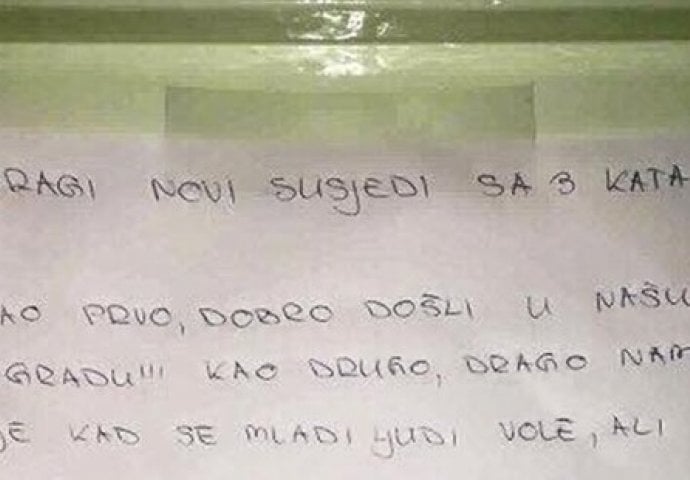 RAGI NOVI SUSJEDI SA 3 KATA
AO PRVO, DOBRO DOŠLI U NAŠU
GRADU!!! KAO DRUGO, DRAGO NAM
JE KAD SE MLADI LJUDI VOLE, ALI